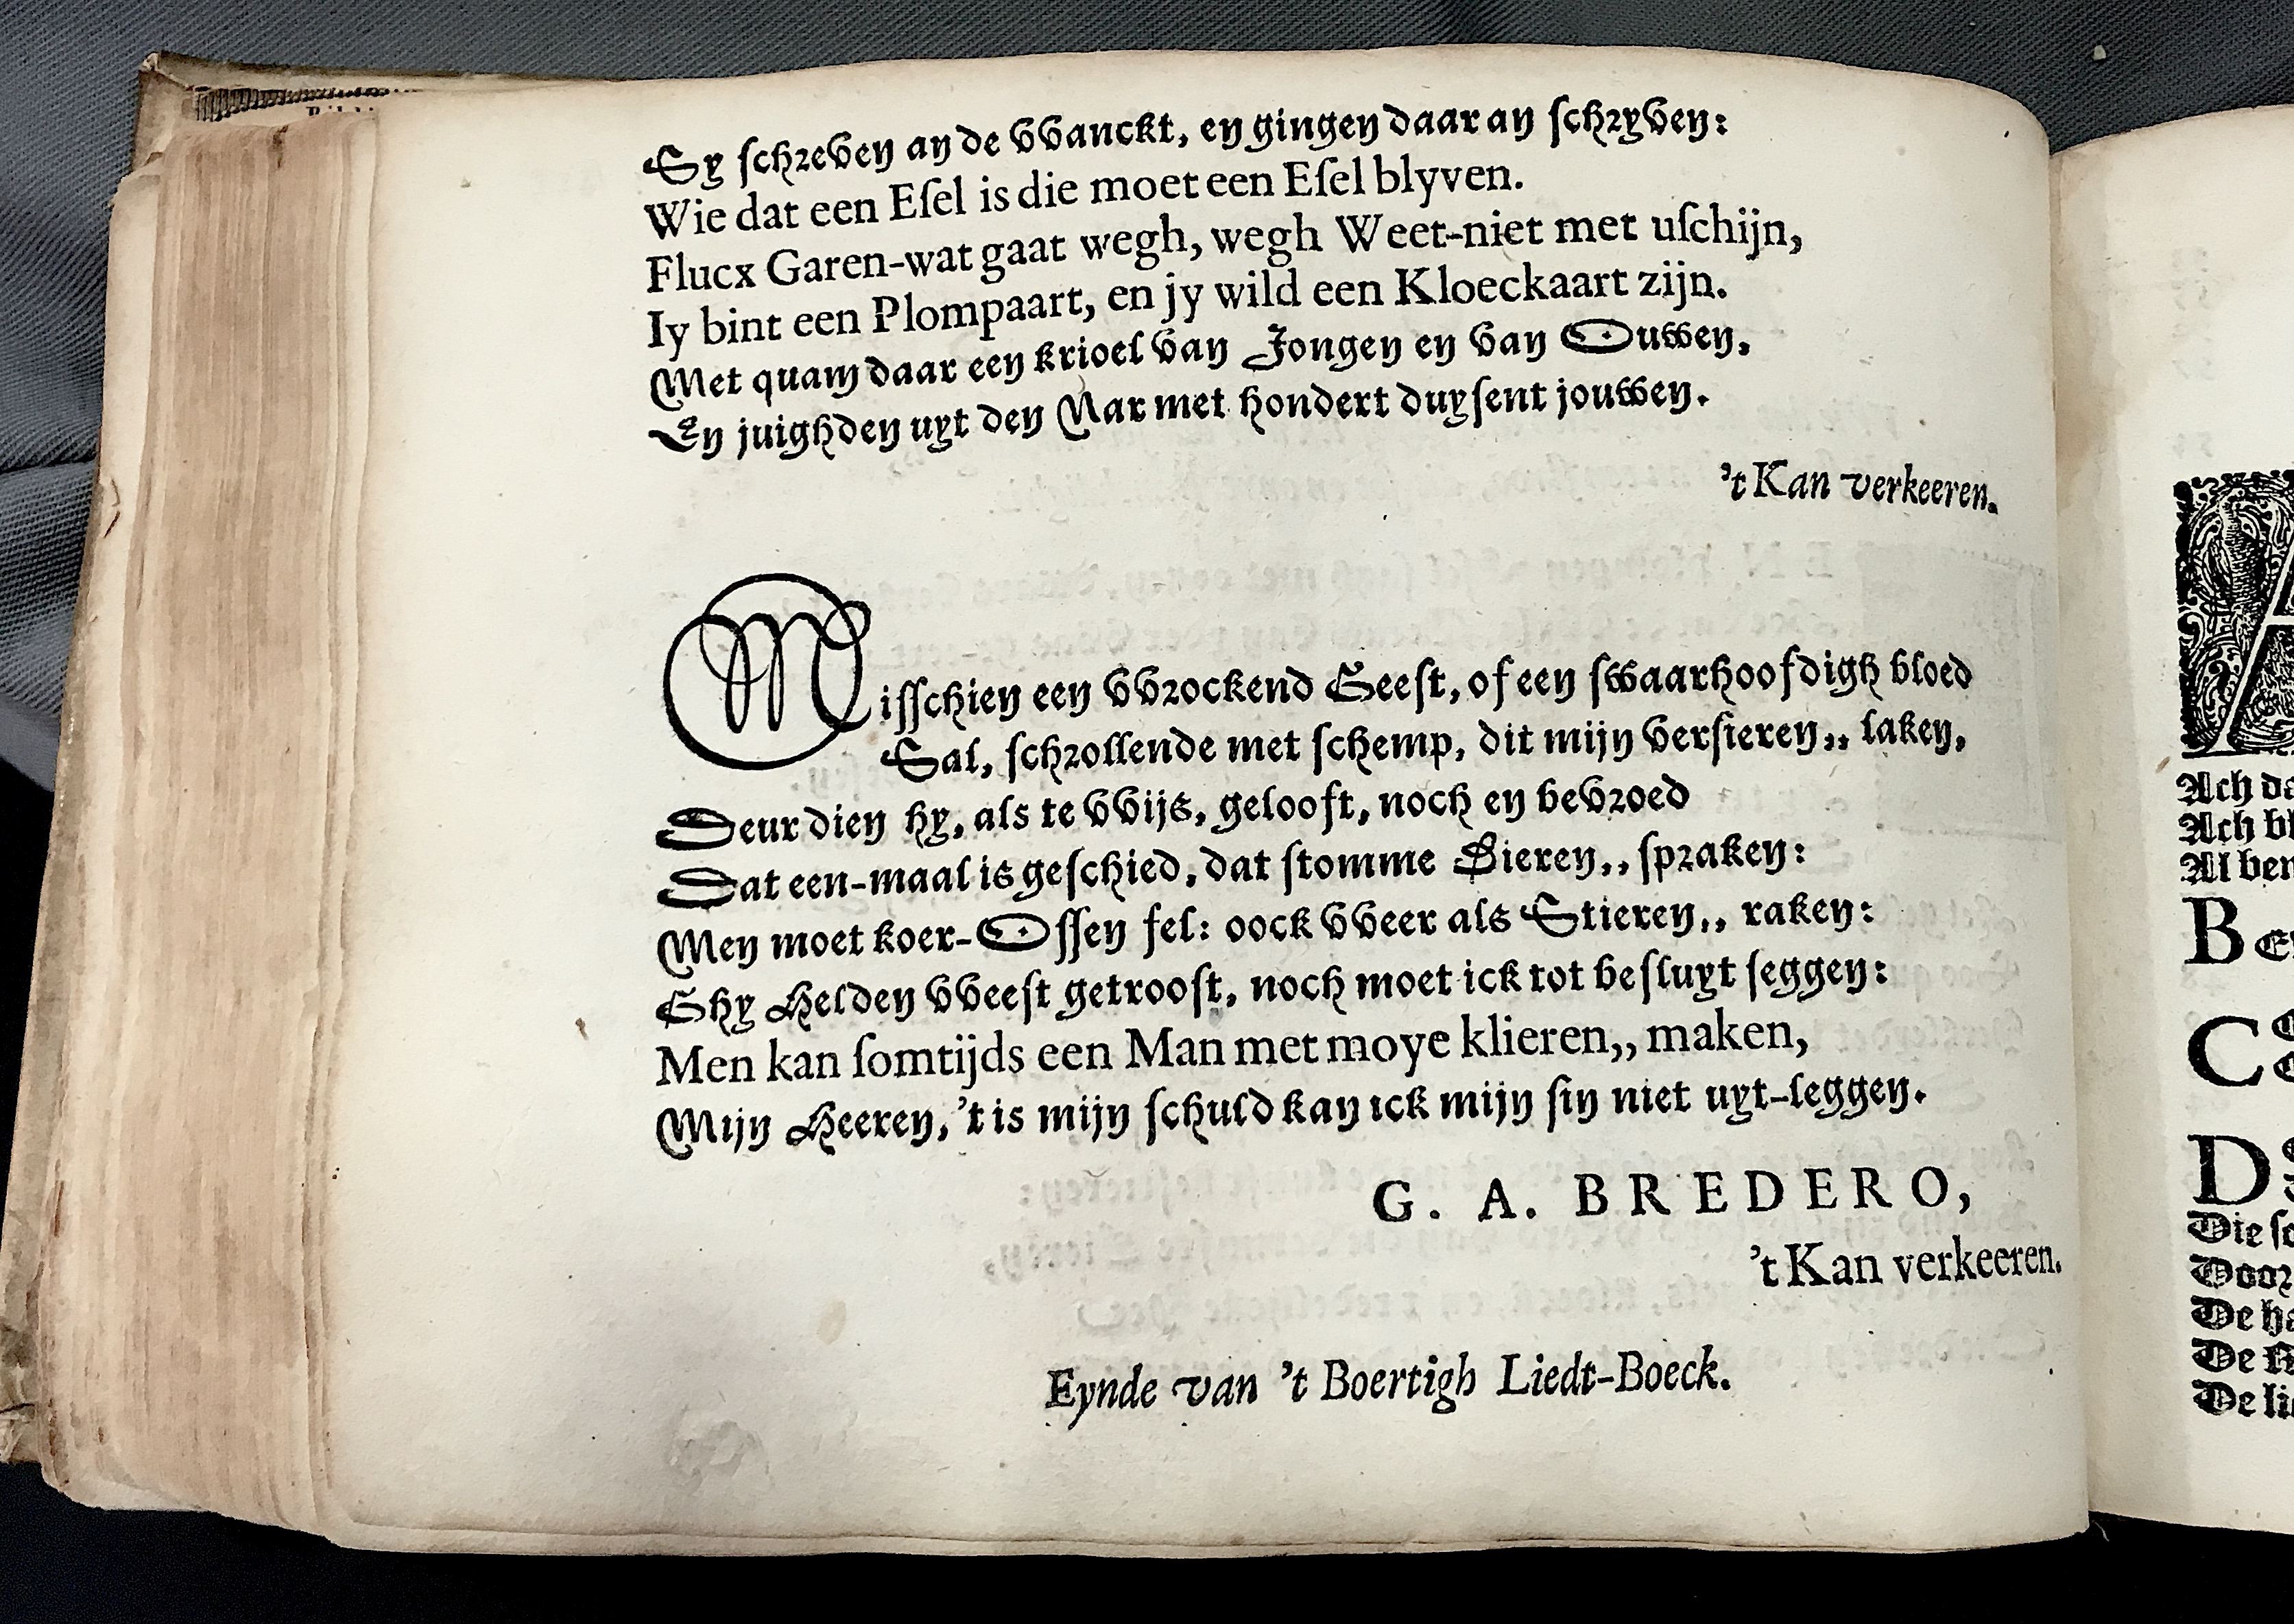 Sy ſchreven an de VVanckt, en gingen daar an ſchryven:
Wie dat een Eſel is die moet een Eſel blyven.
Flucx Garen-wat gaat wegh, wegh Weet-niet met uſchijn,
Iy bint een Plompaart, en jy wild een Kloeckaart zijn.
Met quam daar een krioel van Jongen en van Ouwen,
En juighden uyt den Nar met hondert duyſent jouwen.
't Kan verkeeren.
Miſſchien een VVrockend Geeſt, of een ſwaarhoofdigh bloed
Sal, ſchrollende met ſchemp, dit mijn verſieren,, laken,
Deur dien hy, als te VVijs, gelooft, noch en bevroed
Dat een-maal is geſchied, dat ſtomme Dieren,, ſpraken:
Men moet koer-Oſſen fel: oock VVeer als Stieren,, raken:
Ghy Helden VVeeſt getrooſt, noch moet ick tot beſluyt ſeggen:
Men kan ſomtijds een Man met moye klieren,, maken,
Mijn Heeren, 't is mijn ſchuld kan ick mijn ſin niet uyt-leggen.
G. A. BREDERO,
't Kan verkeeren.
Eynde van 't Boertigh Liedt-Boeck.
A
Ach da
Ach bl
Al ben
B
C
D
Die ſo
Door
De ha
De
De li